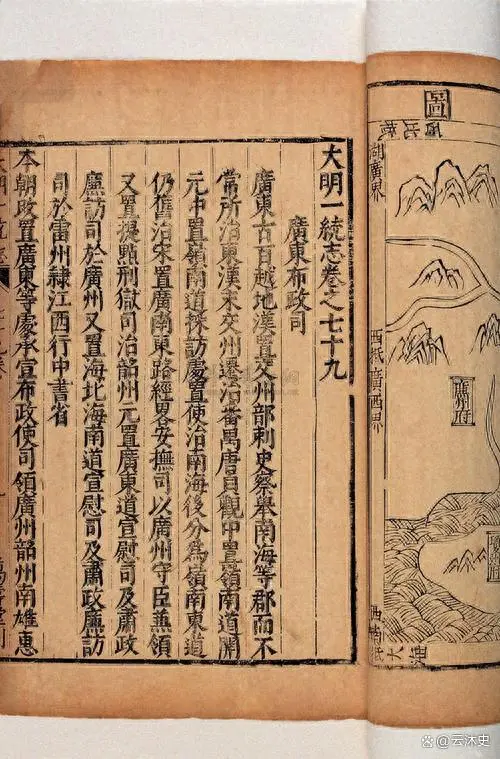 圖
湖廣界
西抵廣西界
廣州府
大海
大明一統志卷之七十九
廣東布政司
廣東古百越地漢置交州部刺史察舉南海等郡而不
常所治東漢末交州遷治番禺唐貞觀中置嶺南道開
元中置嶺南道採訪處置使治南海後分爲嶺南東道
仍舊治宋置廣南東路經畧安撫司以廣州守臣兼領
又置提點刑獄司治韶州元置廣東道宣慰司及肅政
廉訪司於廣州又置海北海南道宣慰司及肅政廉訪
司於雷州隸江西行中書省
本朝改置廣東等處承宣布政使司領廣州韶州南雄惠
@云沐史